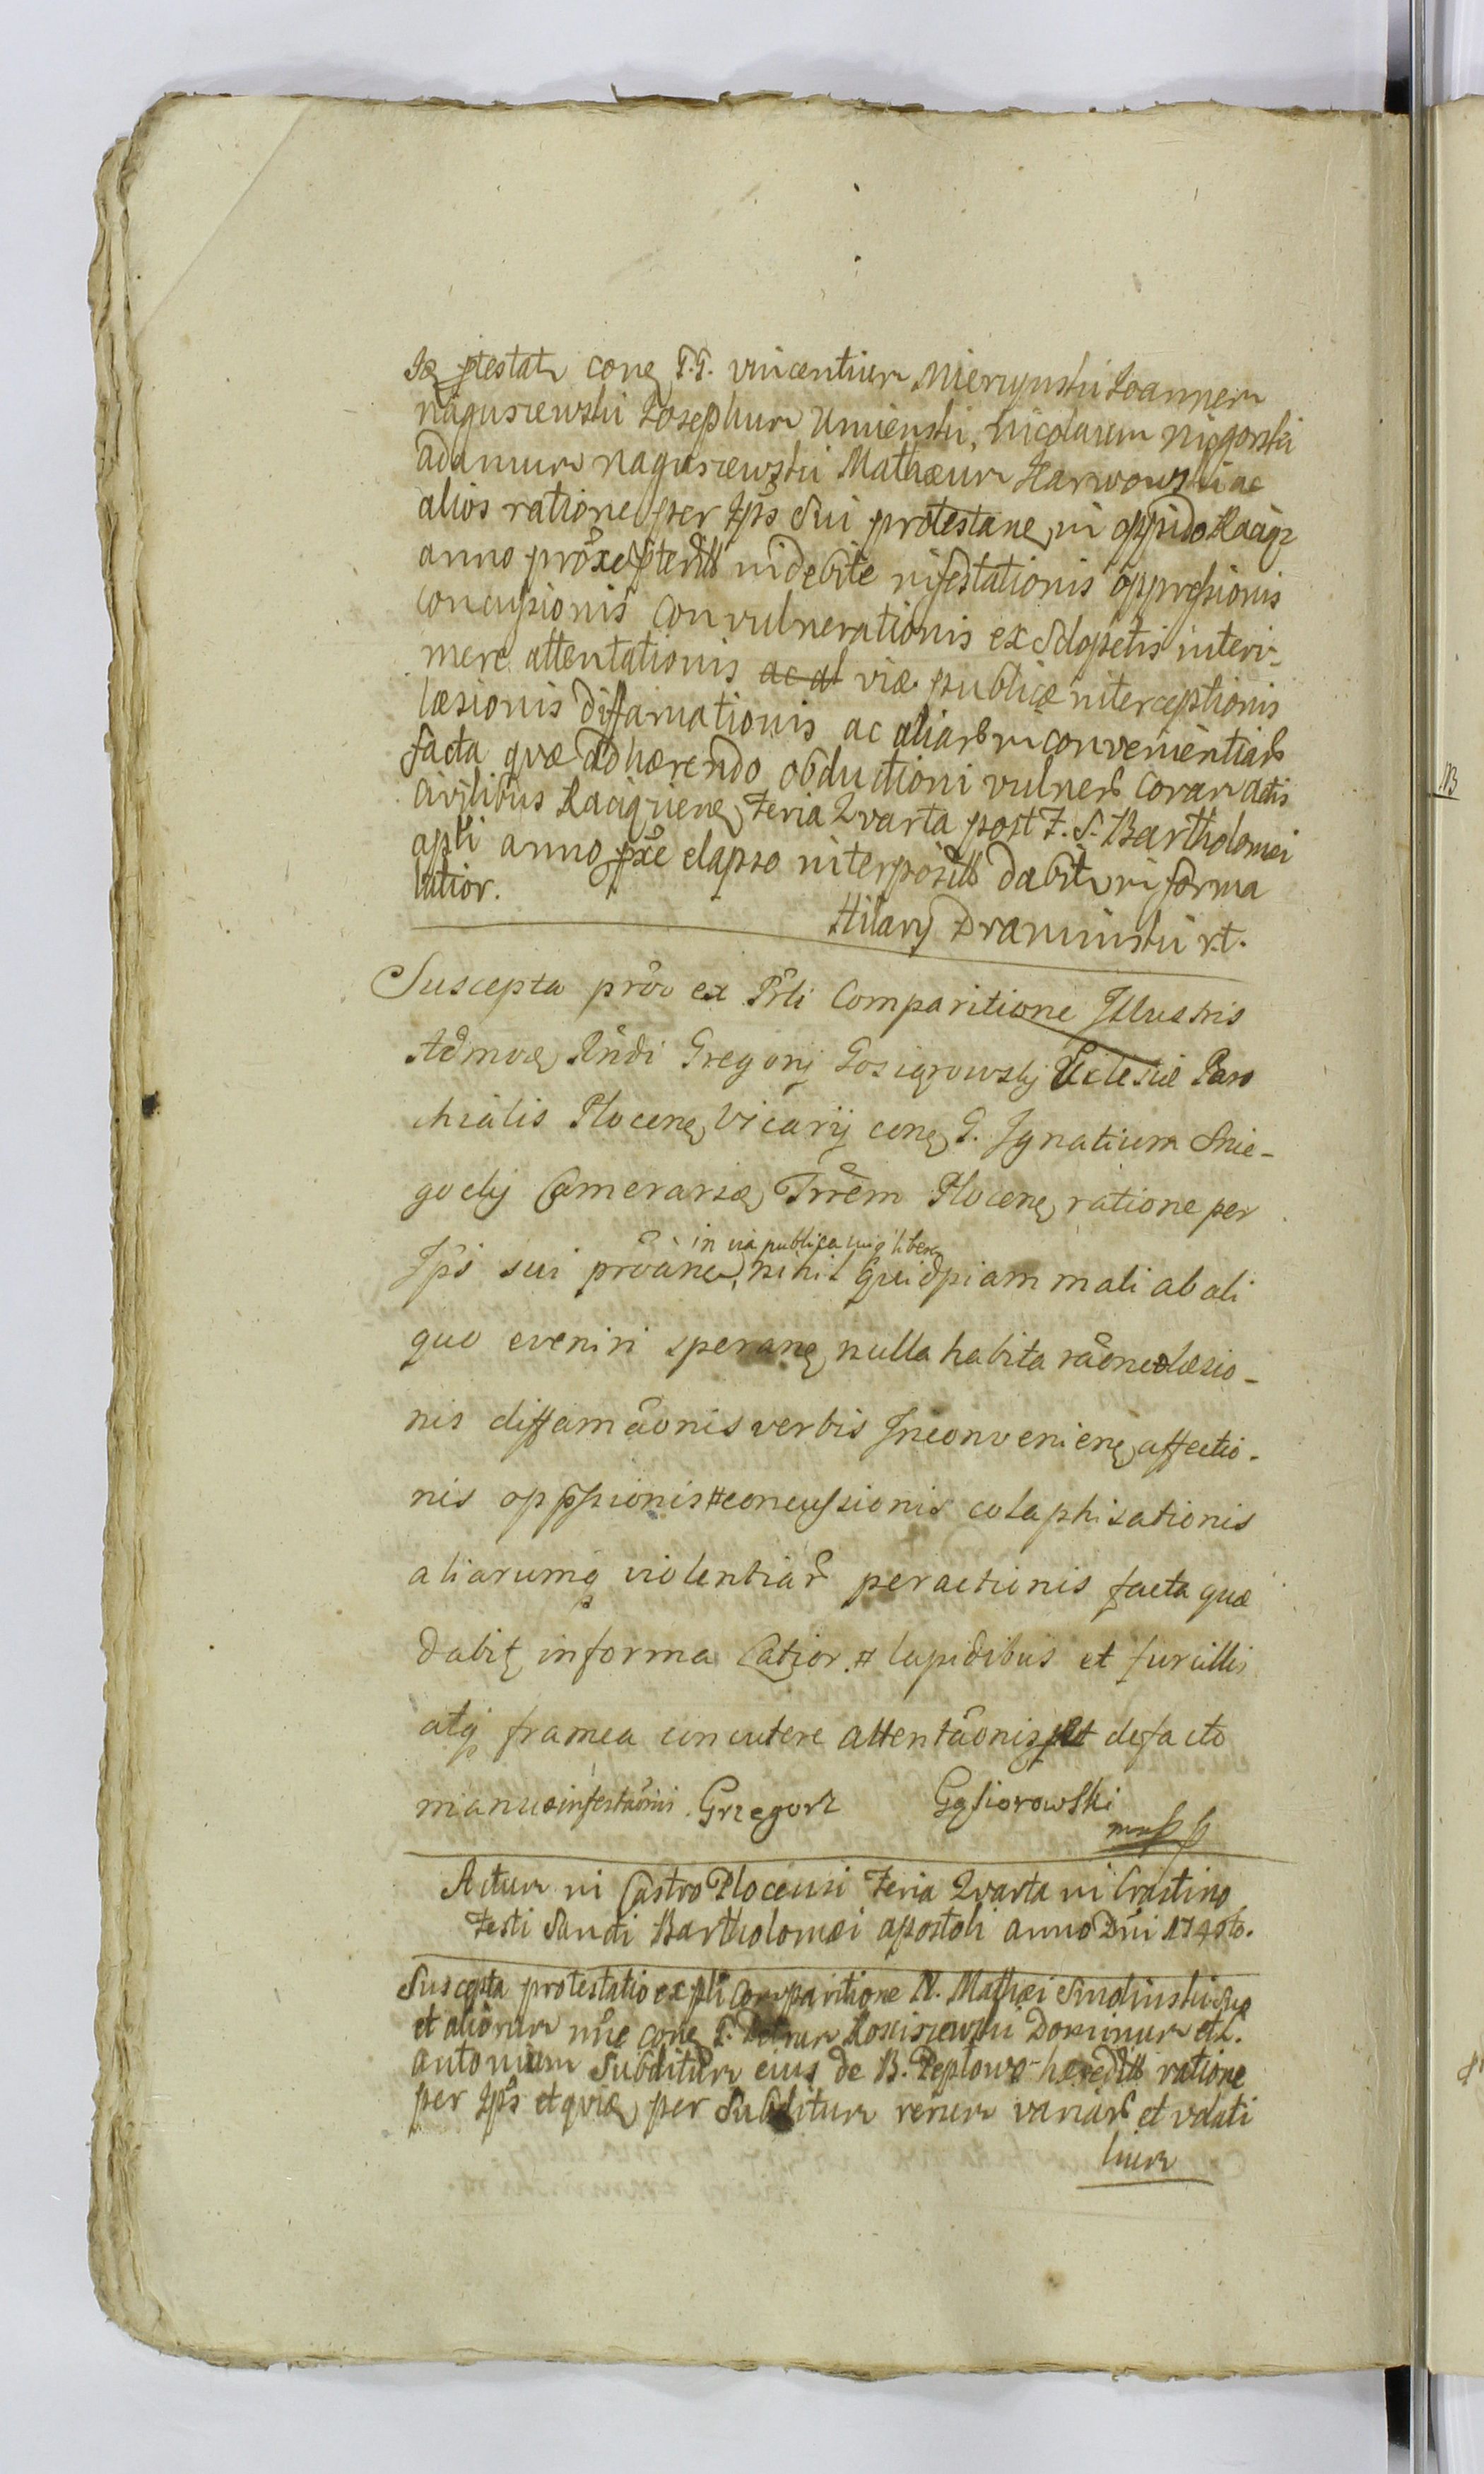 testatr cone G.G. Vincentium Mierzynski Joannem
Naguszewski Josephum Umienski, Nicolaum Nigorski
adamum Naguszewski Mathæum Karwowski ac
alios ratione per Ips Sui protestane in oppido Raciąz
anno proxe pterito indebite infestationis oppressionis
concussionis Convulnerationis ex Sclopetis interi-
mere attentationis ac al viæ publicæ interceptionis
læsionis diffamationis ac aliarum inconvenientiarum
facta quæ adhærendo obductioni vulnerum Coram actis
Civilibus Raciąziene Feria Qvarta post F. S. Bartholomei
apli anno pxe elapso interpositæ dabitur in forma
latior.
Hilary Draminski rt.
Suscepta prôo ex Prli Comparitione Illustris
Admoe Rndi Gregorij Gosiorowskj Ecclesiæ Paro
chialis Plocene Vicarij cone G. Ignatium Snie-
gockj Camerarie Trrem Plocene ratione per
in via publica libere
Ips sui prôane, nihil quidpiam mali ab ali
quo eveniri sperane nulla habita râone læsio-
nis diffamâonis verbis Inconveniene affectio-
nis oppssionis # concussionis colaphisationis
aliarumq violentiarum peractionis facta quæ
Dabit in forma latior. # lapidibus et furcillis
atq framea concutere attentâonis et de facto
manus infestâonis. Grzegorz Gąsiorowski
mpp
Actum in Castro Plocensi Feria Qvarta in Crastino
Festi Sancti Bartholomæi apostoli anno Dni 174
Suscepta protestatio ex pli Comparitione N. Mathæi Smolinski suo
et aliorum nne cone G. Petrum Kosciszewski Dominum et L.
Antonium Subditum eius de B. Peplowo hæredem ratione
per Ips et qvie per Subditum rerum variarum et volati
lium
113